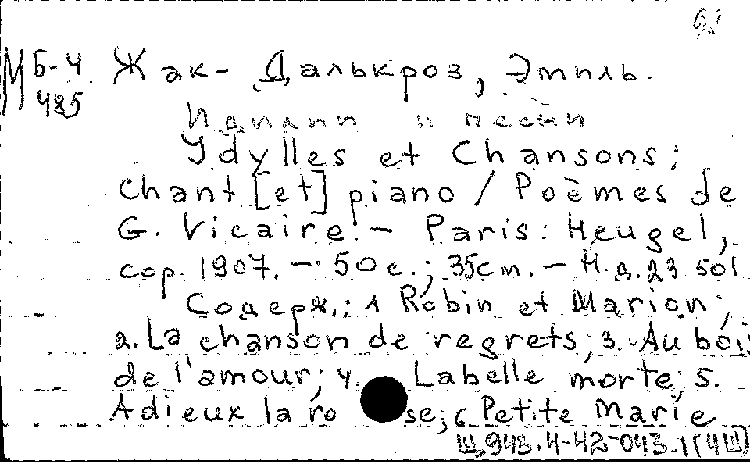 М Б-4 Жак-Далькроз, Эмиль.
485
Идилли и песни
Ydylles et Chansons;
Chant [et] piano / Poèmes de
G. Vicaire. - Paris: Heugel,
cop. 1907. - 50 с.; 35 cm. - Н.д. 23 501
Содерж.: 1 Robin et Marion;
2. La chanson de regrets; 3. Au boi
de l'amour; 4. La belle morte; 5.
Adieux la ro se; 6 Petite Marie
Щ943.4-42-043.1(4Ш)